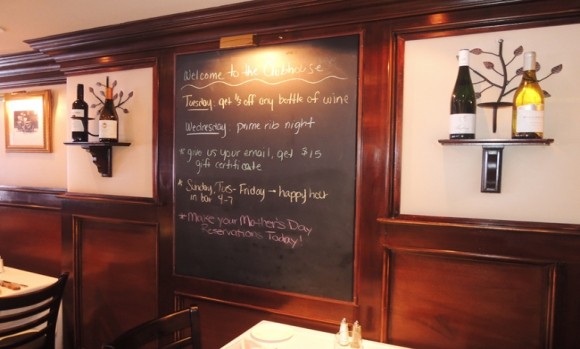 Welcome to the Clubhouse
Tuesday, get ½ off any bottle of wine
Wednesday, prime rib night
* give us your email, get $15
gift certificate
* Sunday, Tues- Friday → happy hour
in bar 4-7
* Make your Mother's Day
Reservations Today!